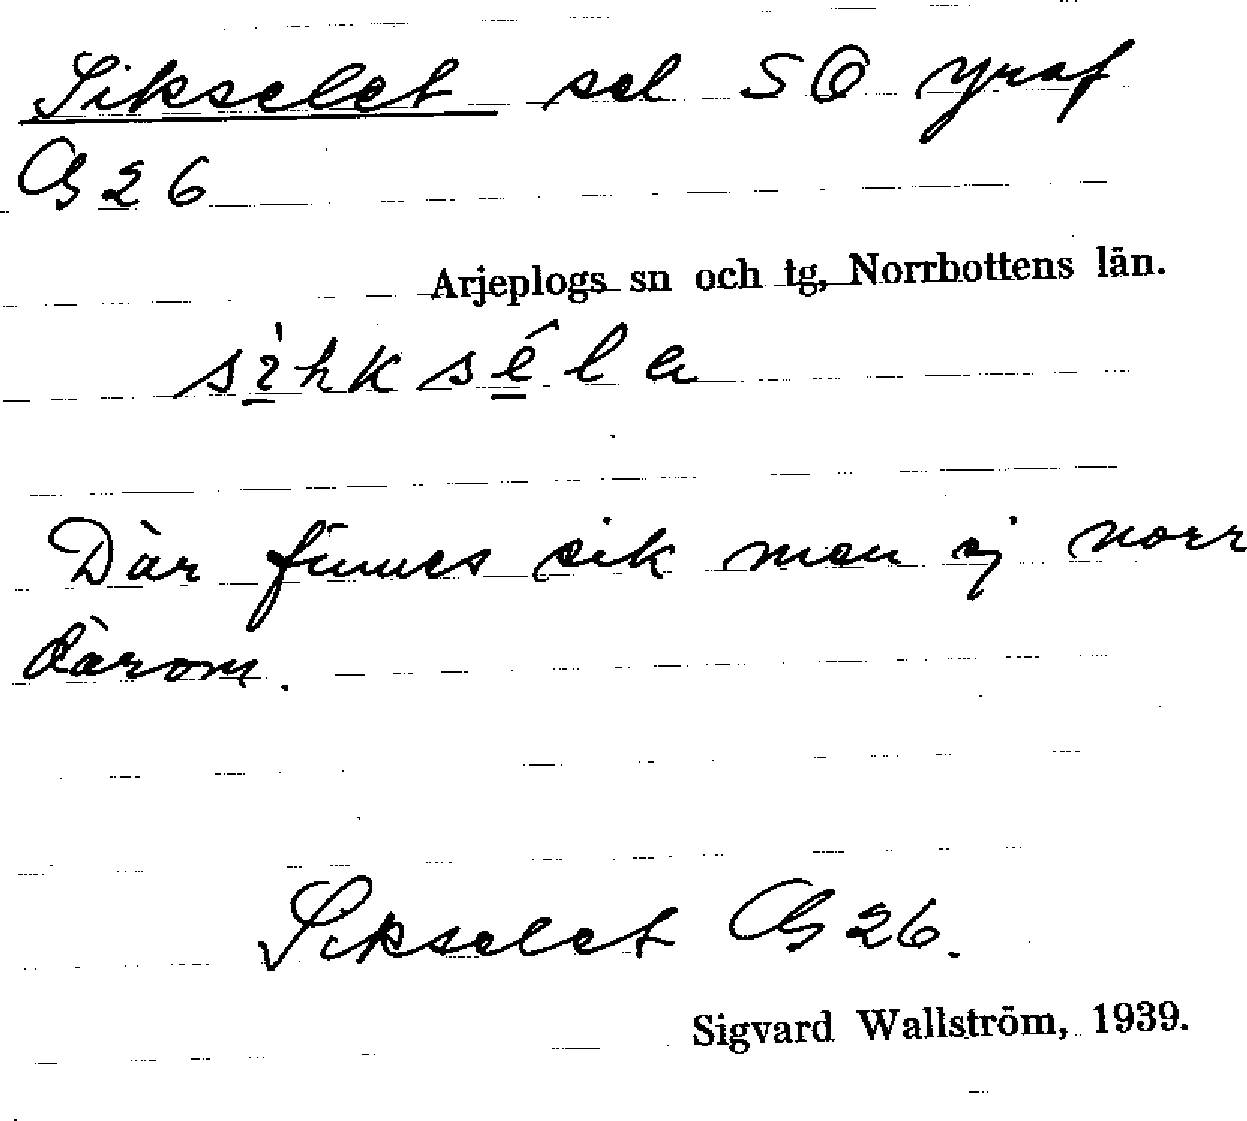 Sikselet sel SO graf
G 26
Arjeplogs sn och tg, Norrbottens län.
sìhkséla
Där finnes sik men ej norr
därom.
Sikselet G 26.
Sigvard Wallström, 1939.